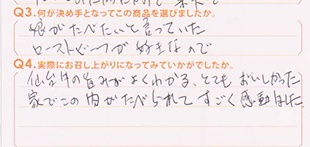 Q3.何が決め手となってこの商品を選びましたか。
娘がたべたいと言っていた
ローストビーフが好きなので
Q4.実際にお召し上がりになってみていかがでしたか。
仙台牛の旨みがよくわかる、とてもおいしかった
家でこの肉がたべられて すごく感動した